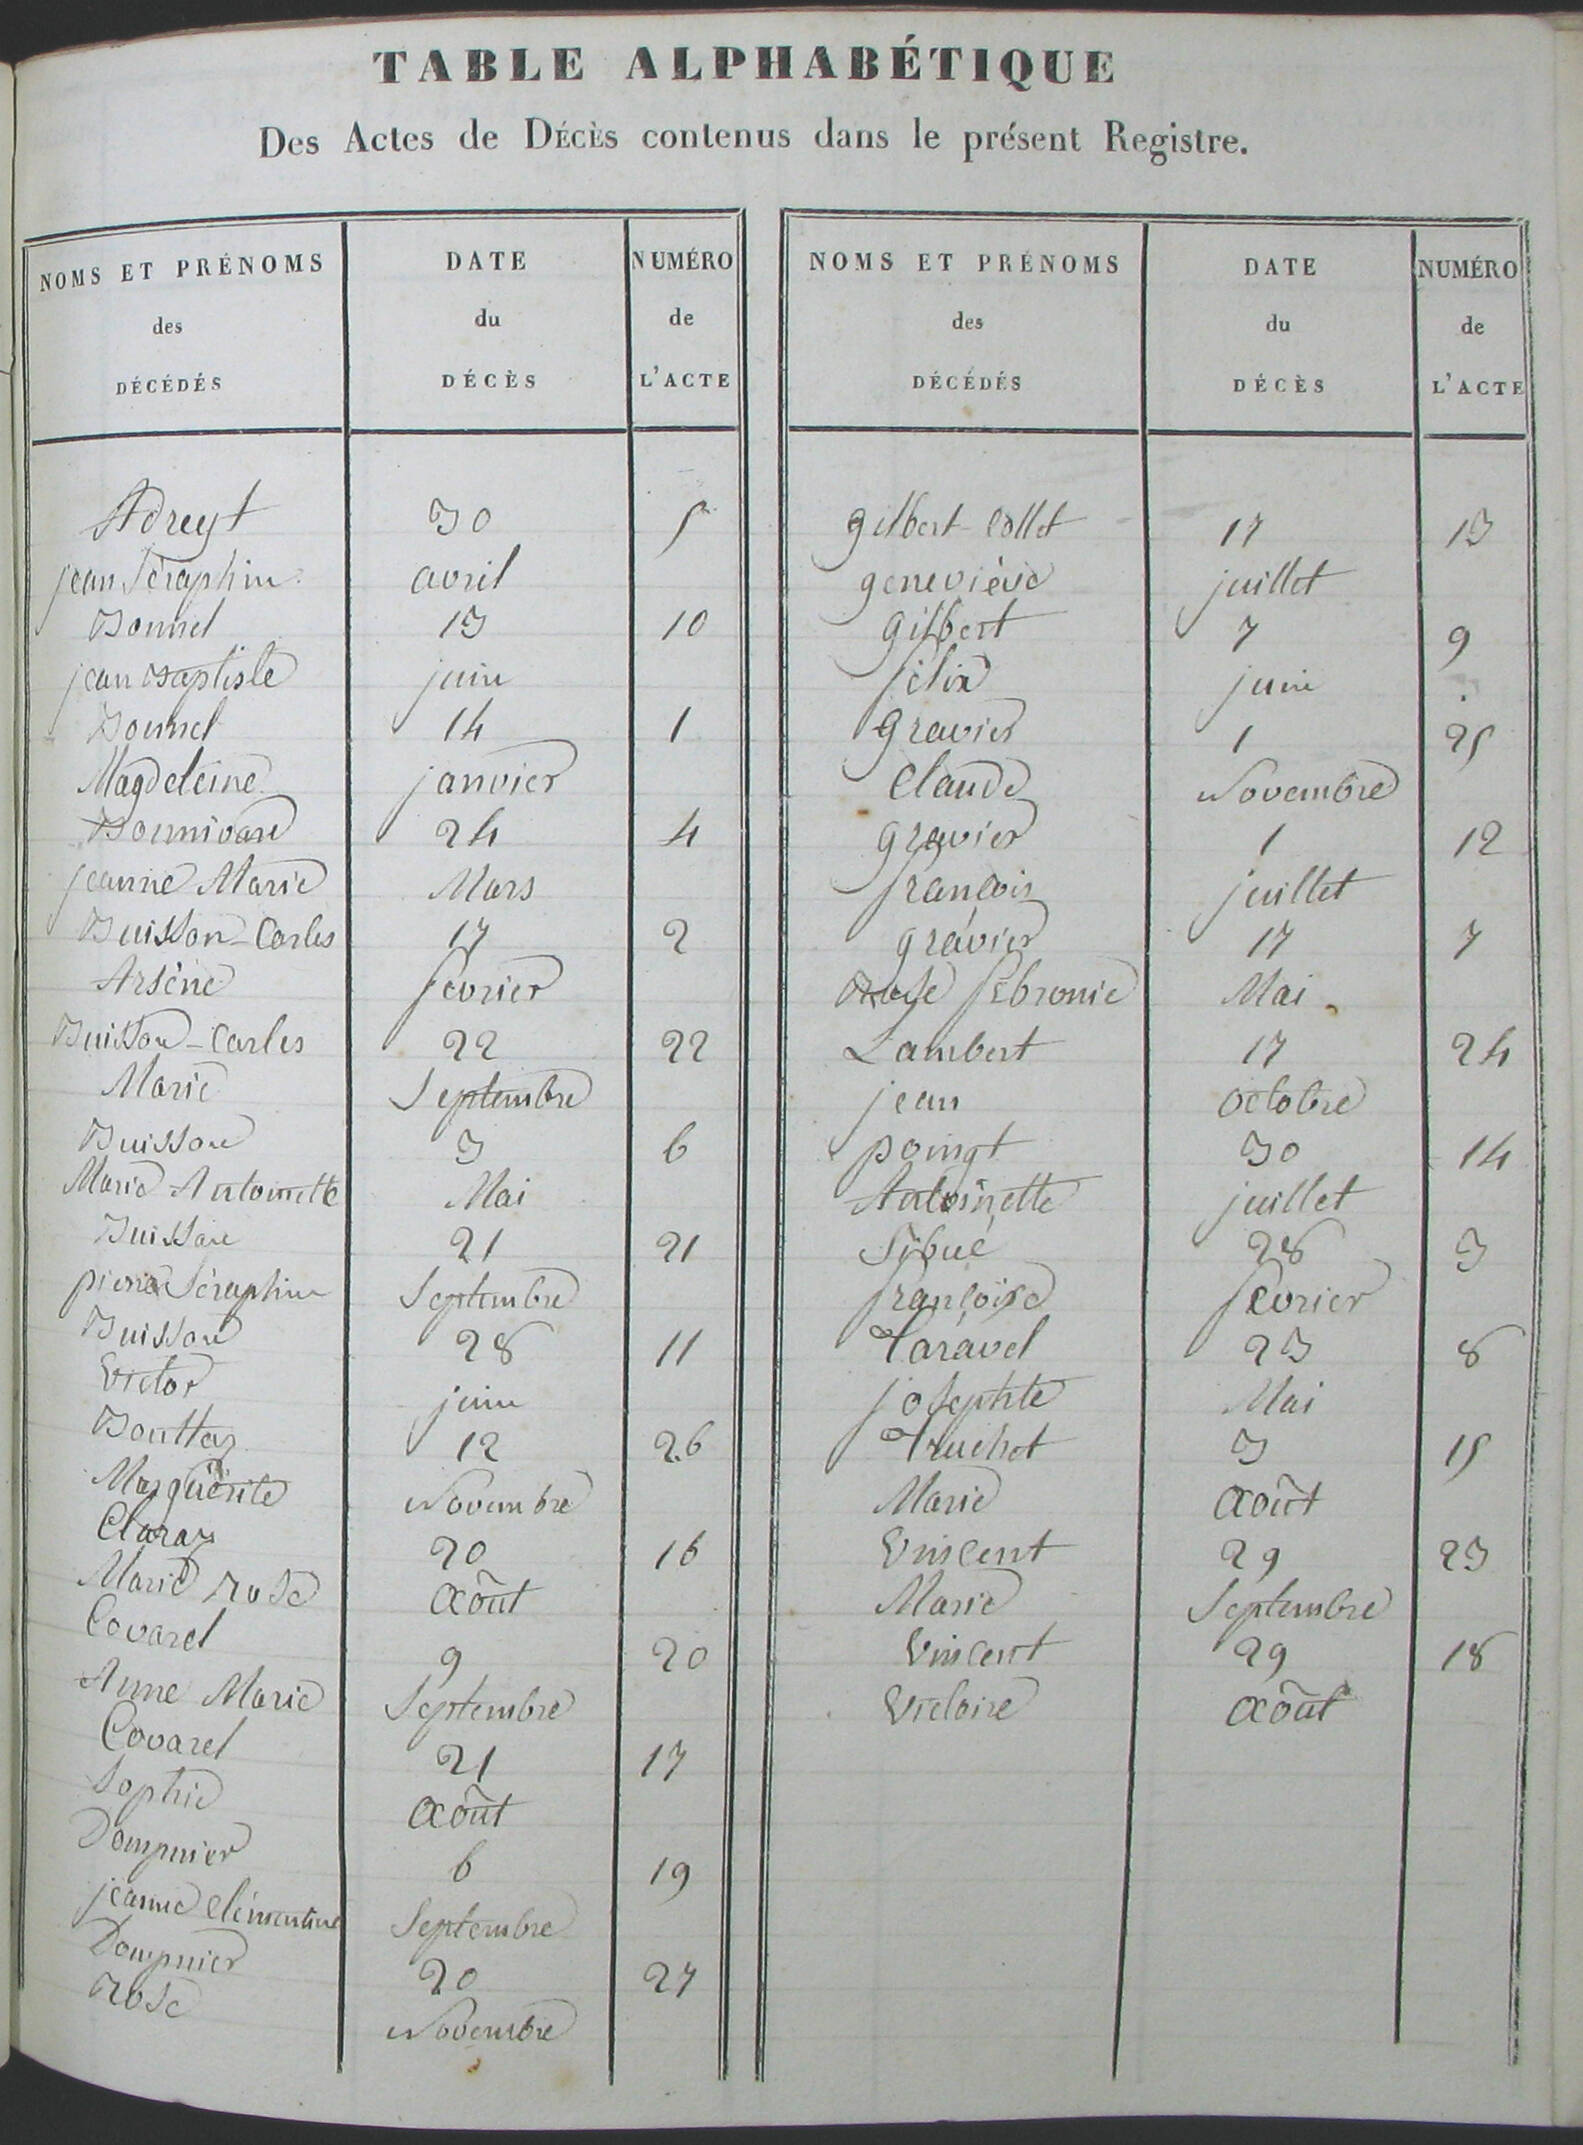 TABLE ALPHABÉTIQUE
Des Actes de DÉCÈS contenus dans le présent Registre.
NOMS ET PRÉNOMS
des
DÉCÉDÉS
DATE
du
DÉCÈS
NUMÉRO
de
L'ACTE
Adreyt 30 5
jean Séraphin avril
Bonnel 13 10
jean Baptiste juin
Bonnel 14 1
Magdeleine janvier
Bonnivard 24 4
jeanne Marie Mars
Buisson-Carles 17 2
Arsène février
Buisson-Carles 22 22
Marie Septembre
Buisson 3 6
Marie Antoinette Mai
Buisson 21 21
pierre Séraphin Septembre
Buisson 28 11
Victor juin
Bouttaz 12 26
Marguerite Novembre
Claraz 20 16
Marie Rose Août
Covarel 9 20
Anne Marie Septembre
Covarel 21 17
Sophie Août
Dompnier 6 19
jeanne Clémentine Septembre
Dompnier 20 27
Rose Novembre
NOMS ET PRÉNOMS
des
DÉCÉDÉS
DATE
du
DÉCÈS
NUMÉRO
de
L'ACTE
Gilbert-Collet 17 13
geneviève juillet
Gilbert 7 9
félix juin
Gravier 1 25
Claude Novembre
gravier 1 12
françois juillet
gravier 17 7
Rose fébronie Mai
Lambert 17 24
jean octobre
poingt 30 14
Antoinette juillet
Sibué 28 3
françoise février
Taravel 23 8
josephte Mai
Truchet 3 15
Marie Août
Vincent 29 23
Marie Septembre
Vincent 29 18
Victoire Août